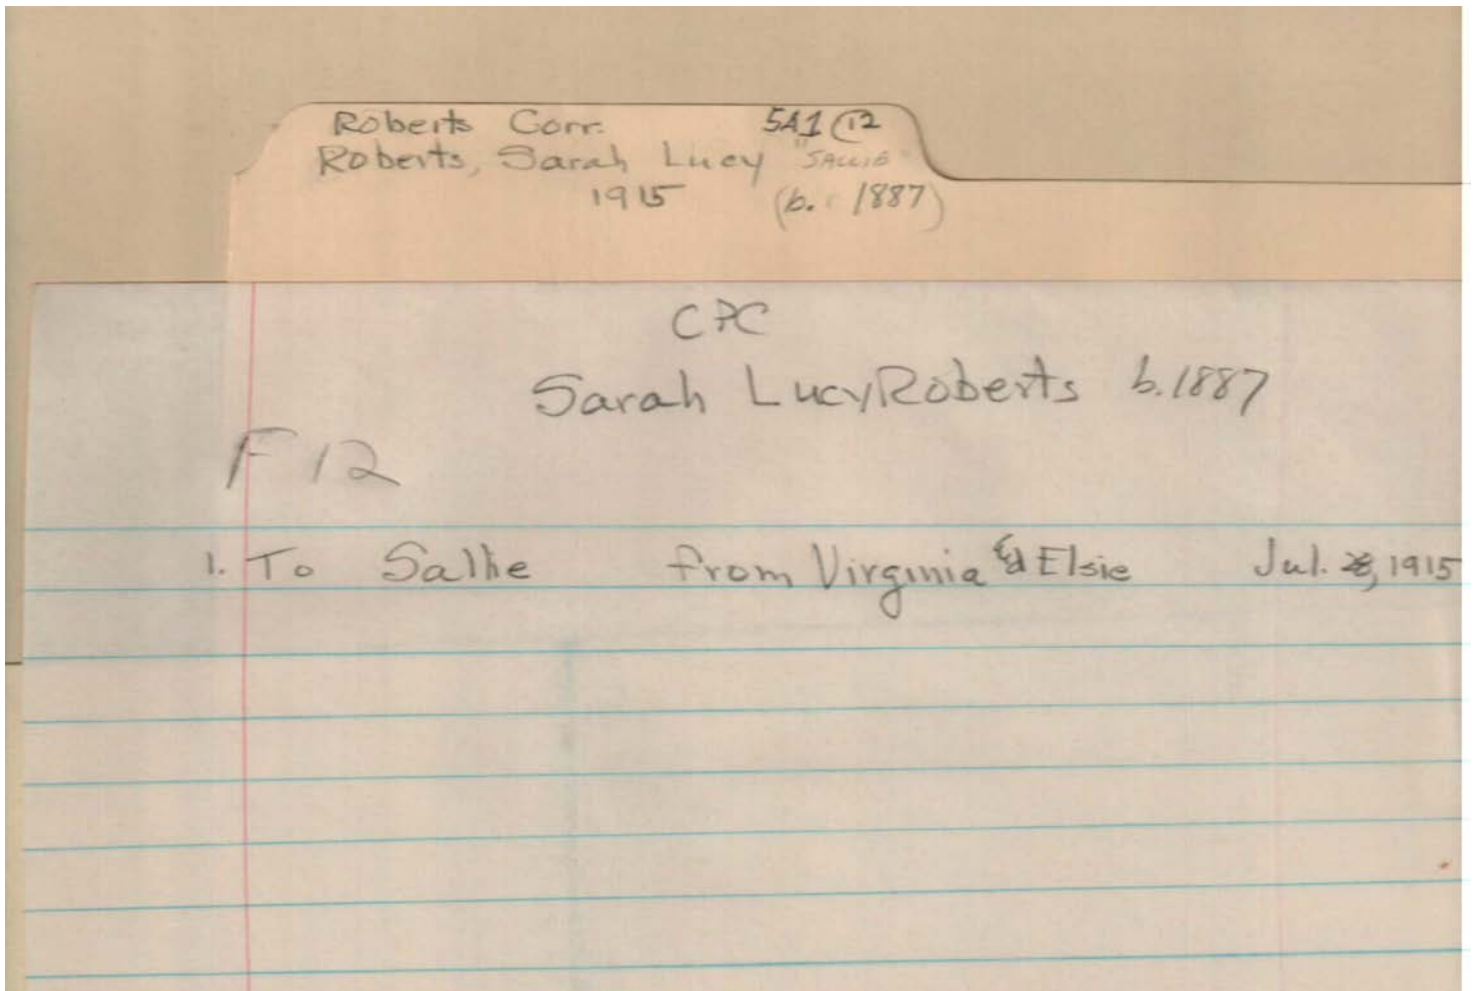 Roberts Corr. 5A1 12
Roberts, Sarah Lucy "SALLIE"
1915 (b. 1887)
CPC
Sarah Lucy Roberts b. 1887
F 12
1. To Sallie from Virginia & Elsie Jul. 28, 1915